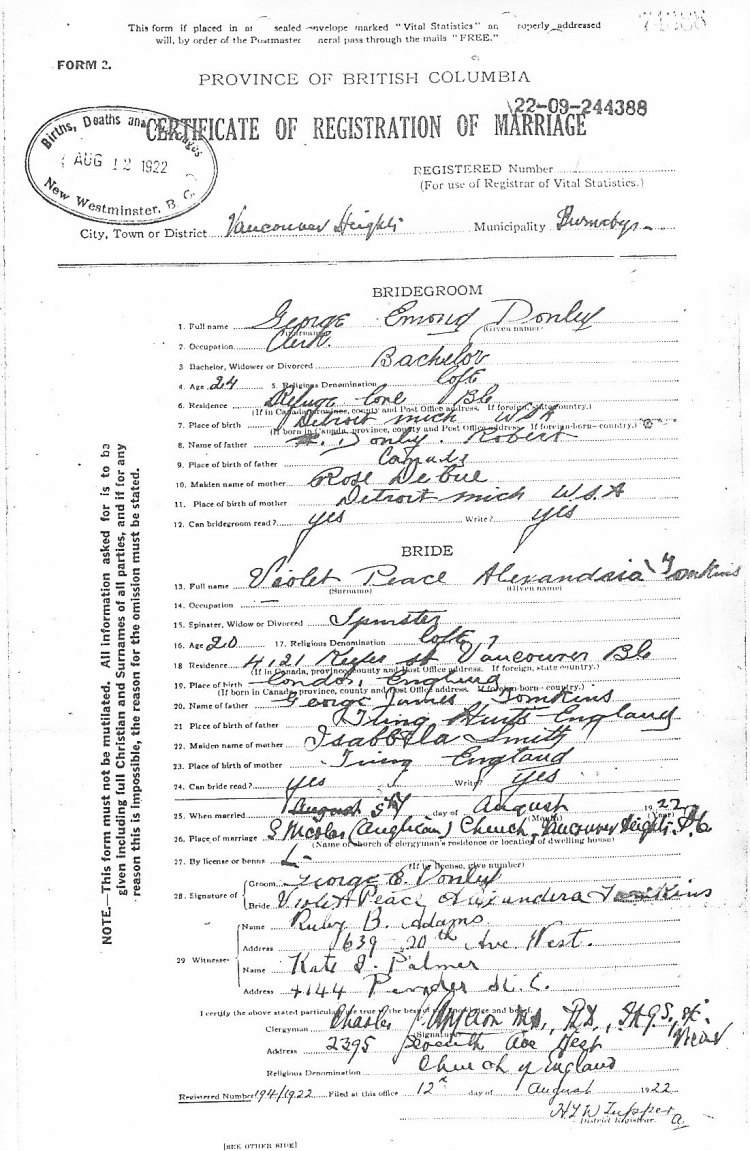 74388
This form if placed in an sealed envelope marked "Vital Statistics" an properly addressed
will, by order of the Postmaster neral pass through the mails "FREE."
FORM 2.
PROVINCE OF BRITISH COLUMBIA
22-09-244388
CERTIFICATE OF REGISTRATION OF MARRIAGE
Births, Deaths and
AUG 12 1922
New Westminster, B.C.
REGISTERED Number
(For use of Registrar of Vital Statistics.)
City, Town or District Vancouver Heights Municipality Burnaby
BRIDEGROOM
1. Full name George Emond Donley
(Surname) (Given name)
2. Occupation Clerk
3 Bachelor, Widower or Divorced Bachelor
4. Age 24 5. Religious Denomination C of E
6. Residence Refuge Cove BC
(If in Canada, province, county and Post Office address. If foreign, state country.)
7. Place of birth Detroit Mich USA
(If born in Canada, province, county and Post Office address. If foreign-born—country.)
8. Name of father Donley. Robert
9. Place of birth of father Canada
10. Maiden name of mother Rose
11. Place of birth of mother Detroit Mich USA
12. Can bridegroom read? yes Write? yes
BRIDE
13. Full name Violet Peace Alexandria Tomkins
(Surname) (Given name)
14. Occupation —
15. Spinster, Widow or Divorced Spinster
16. Age 20 17. Religious Denomination C of E
18 Residence 4121 St Vancouver BC
(If in Canada, province, county and Post Office address. If foreign, state country.)
19. Place of birth London, England
(If born in Canada, province, county and Post Office address. If foreign-born-country.)
20. Name of father George James Tomkins
21 Place of birth of father England
22. Maiden name of mother Isabella Smith
23. Place of birth of mother England
24. Can bride read? yes Write? yes
25. When married August 5th day of August 1922
(Month) (Year)
26. Place of marriage S Nicolas (Anglican) Church, Vancouver Heights, B.C.
(Name of church of clergyman's residence or location of dwelling house)
27. By license or banns L
(If by license, give number)
28. Signature of Groom George E. Donley
Bride Violet Peace Alexandera Tomkins
29 Witnesses Name Ruby B. Adams
Address 1639 20th Ave West.
Name Kate J. Palmer
Address 4144 Pender St. E.
I certify the above stated particulars are true to the best of my knowledge and belief.
Clergyman Charles
(Signature)
Address 2395 Seventh Ave West
Vicar
Religious Denomination Church of England
Registered Number 194/1922 Filed at this office 12th day of August 1922
H T W Tupper
District Registrar.
[SEE OTHER SIDE]
NOTE.—This form must not be mutilated. All information asked for is to be
given including full Christian and Surnames of all parties, and if for any
reason this is impossible, the reason for the omission must be stated.